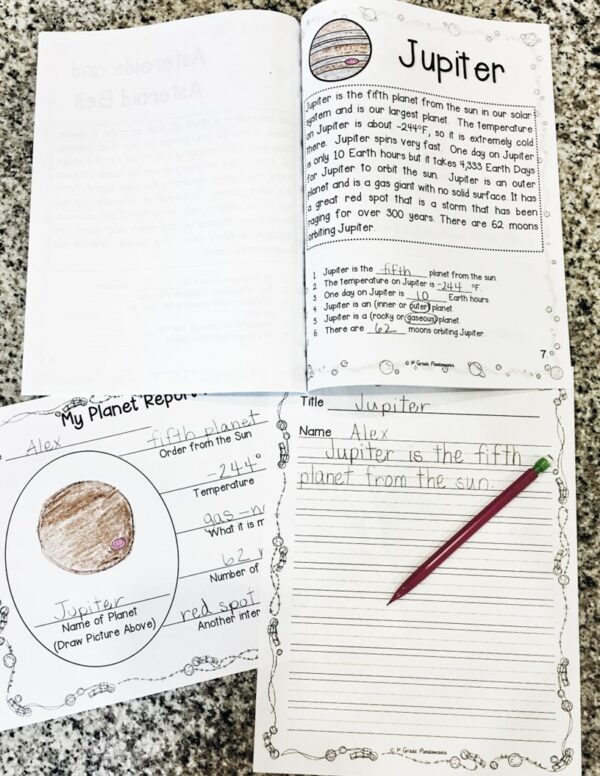 Jupiter
Jupiter is the fifth planet from the sun in our solar
system and is our largest planet. The temperature
on Jupiter is about -244°F, so it is extremely cold
there. Jupiter spins very fast. One day on Jupiter
is only 10 Earth hours but it takes 4,333 Earth Days
for Jupiter to orbit the sun. Jupiter is an outer
planet and is a gas giant with no solid surface. It has
a great red spot that is a storm that has been
raging for over 300 years. There are 62 moons
orbiting Jupiter.
1. Jupiter is the fifth planet from the sun.
2. The temperature on Jupiter is -244 °F.
3. One day on Jupiter is 10 Earth hours
4. Jupiter is an (inner or outer) planet.
5. Jupiter is a (rocky or gaseous) planet.
6. There are 62 moons orbiting Jupiter.
© 1st Grade Pandamania
7
Asteroids and
Asteroid Belt
My Planet Report
Alex
fifth planet
Order from the Sun
-244°
Temperature
gas-n
What it is m
62
Number of
red spot
Another inter
Jupiter
Name of Planet
(Draw Picture Above)
Title Jupiter
Name Alex
Jupiter is the fifth
planet from the sun.
© 1st Grade Pandamania